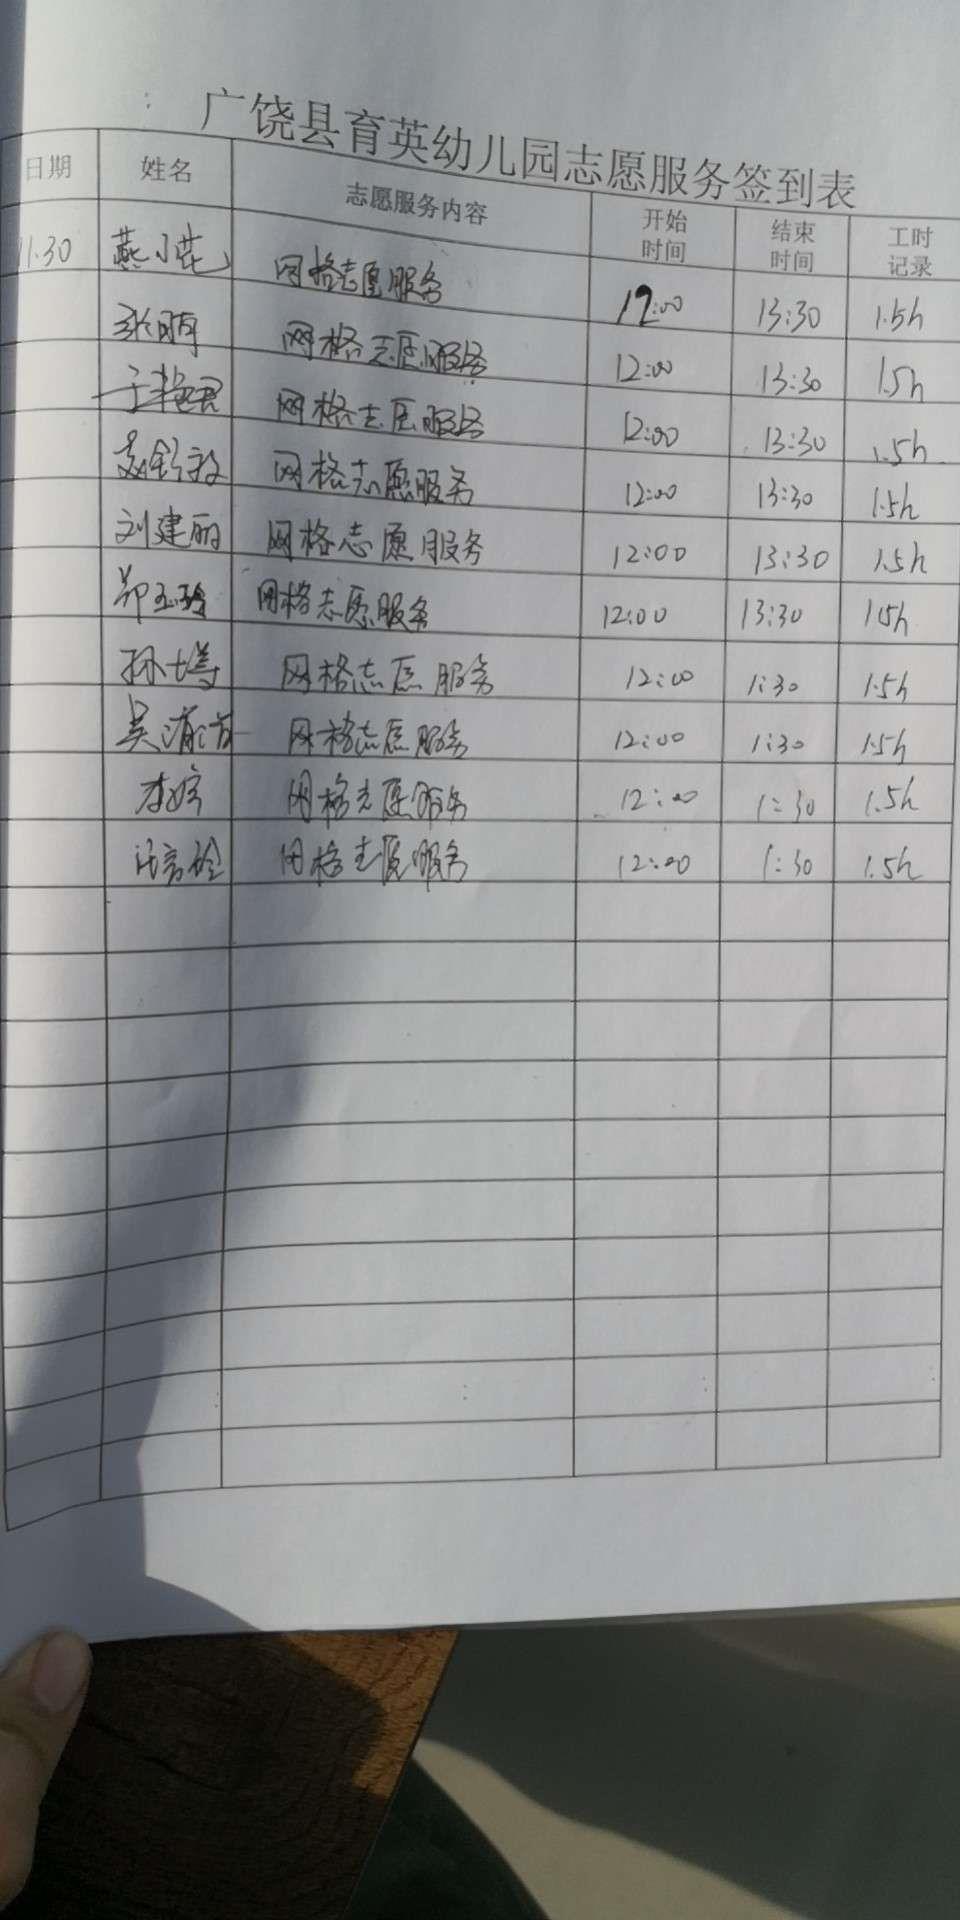 广饶县育英幼儿园志愿服务签到表
日期 姓名 志愿服务内容 开始时间 结束时间 工时记录
11.30 燕小花 网格志愿服务 12:00 13:30 1.5h
网格志愿服务 12:00 13:30 1.5h
于艳君 网格志愿服务 12:00 13:30 1.5h
网格志愿服务 12:00 13:30 1.5h
刘建丽 网格志愿服务 12:00 13:30 1.5h
郑玉玲 网格志愿服务 12:00 13:30 1.5h
网格志愿服务 12:00 1:30 1.5h
网格志愿服务 12:00 1:30 1.5h
李婷 网格志愿服务 12:00 1:30 1.5h
网格志愿服务 12:00 1:30 1.5h